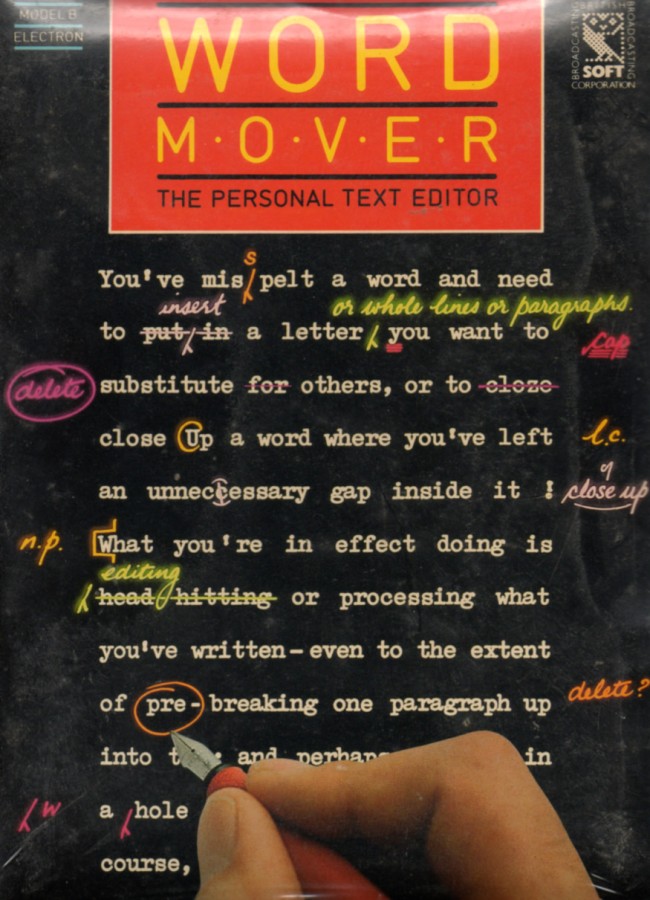 MODEL B
ELECTRON
WORD
M·O·V·E·R
THE PERSONAL TEXT EDITOR
BRITISH
BROADCASTING
SOFT
BROADCASTING
CORPORATION
s
You've mispelt a word and need
insert
or whole lines or paragraphs.
to put in a letter you want to
Cap
delete
substitute for others, or to cloze
close Up a word where you've left
l.c.
an unneccessary gap inside it !
close up
n.p.
What you're in effect doing is
editing
head hitting or processing what
you've written-even to the extent
of pre-breaking one paragraph up
delete?
into and perhaps in
w
a hole
course,